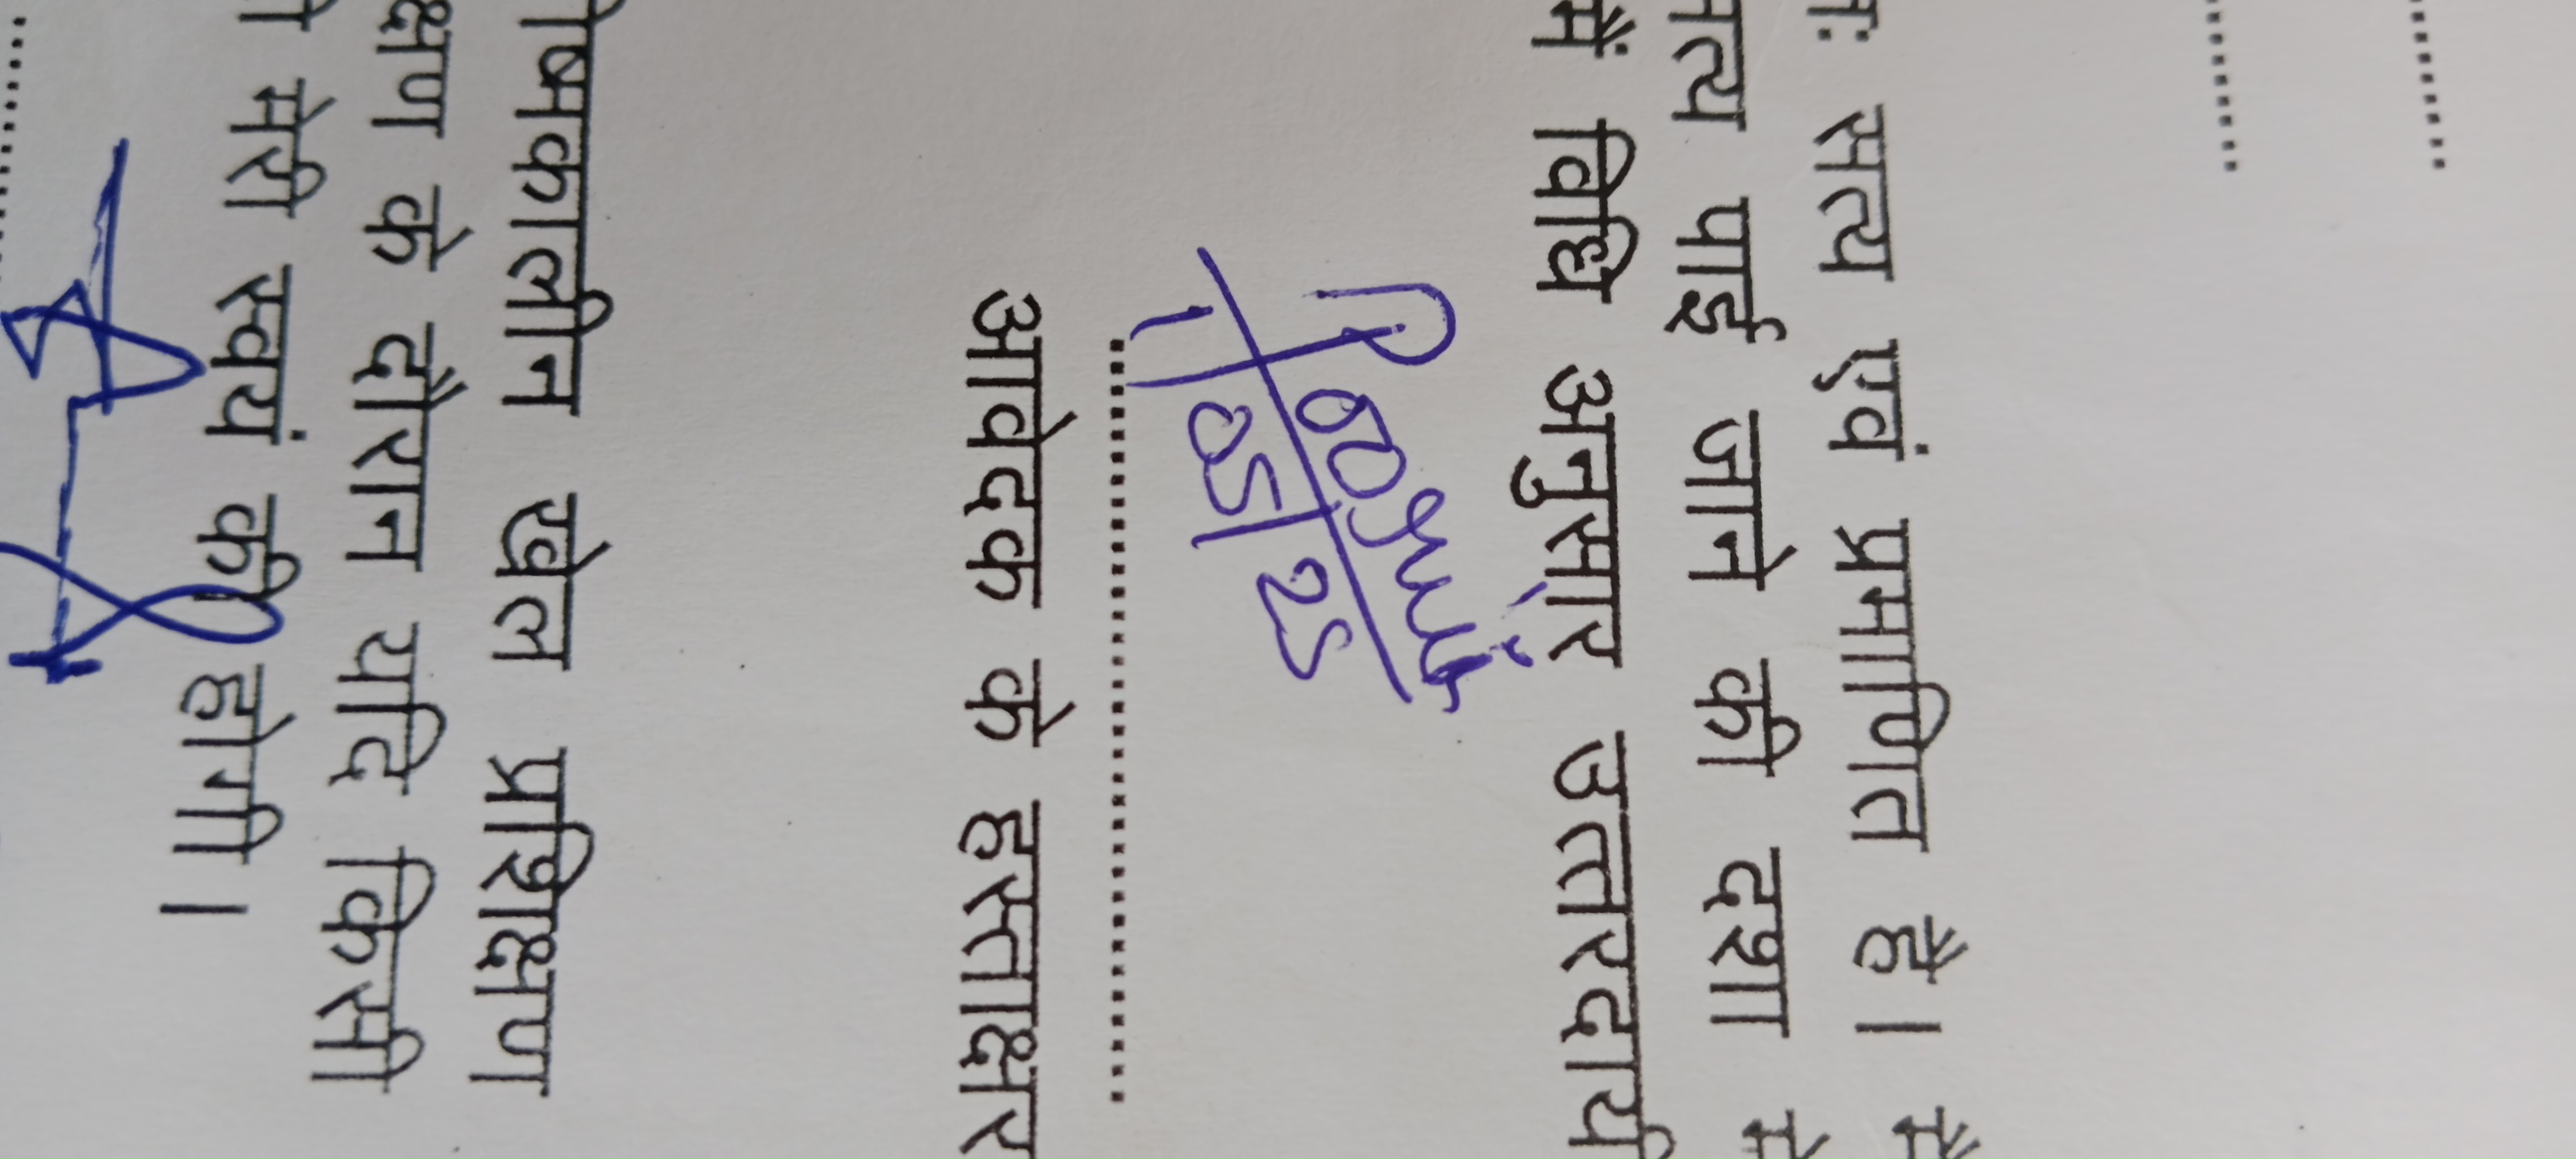 सत्य एवं प्रमाणित है। मैं
पाई जाने की दशा में
में विधि अनुसार उत्तरदायी
1/05/25
आवेदक के हस्ताक्षर
खेल प्रशिक्षण
के दौरान यदि किसी
मेरी स्वयं की होगी।